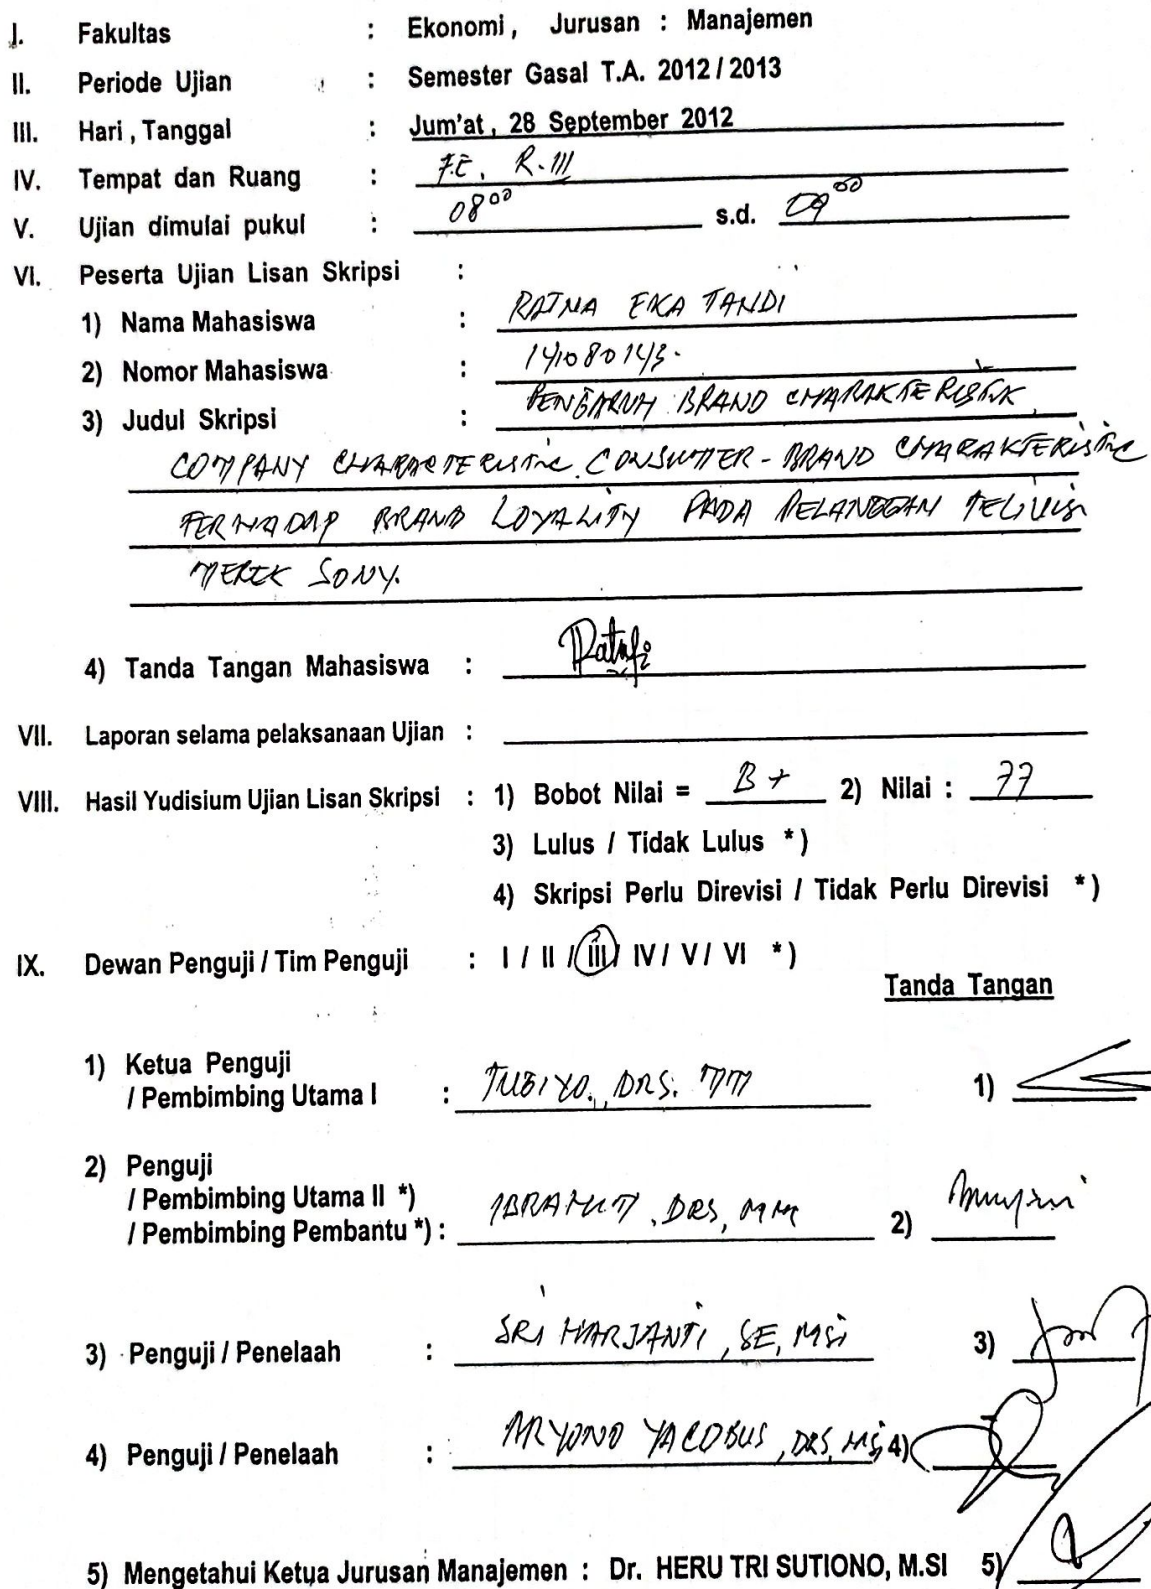 I. Fakultas : Ekonomi, Jurusan : Manajemen
II. Periode Ujian : Semester Gasal T.A. 2012 / 2013
III. Hari, Tanggal : Jum'at, 28 September 2012
IV. Tempat dan Ruang : F.E. R.III
V. Ujian dimulai pukul : 08⁰⁰ s.d. 09⁰⁰
VI. Peserta Ujian Lisan Skripsi :
1) Nama Mahasiswa : RATNA EKA TANDI
2) Nomor Mahasiswa : 141080143.
3) Judul Skripsi : PENGARUH BRAND CHARAKTERISTIK,
COMPANY CHARACTERISTIC CONSUMER - BRAND CHARAKTERISTIC
TERHADAP BRAND LOYALITY PADA PELANGGAN TELIVISI
MEREK SONY.
4) Tanda Tangan Mahasiswa :
VII. Laporan selama pelaksanaan Ujian :
VIII. Hasil Yudisium Ujian Lisan Skripsi : 1) Bobot Nilai = B+ 2) Nilai : 77
3) Lulus / Tidak Lulus *)
4) Skripsi Perlu Direvisi / Tidak Perlu Direvisi *)
IX. Dewan Penguji / Tim Penguji : I / II / III / IV / V / VI *)
Tanda Tangan
1) Ketua Penguji
/ Pembimbing Utama I : TUGIYO., DRS. MM 1)
2) Penguji
/ Pembimbing Utama II *)
/ Pembimbing Pembantu *) : IBRAHIM, DRS, MM 2)
3) Penguji / Penelaah : SRI HARJANTI, SE, MSi 3)
4) Penguji / Penelaah : ARYONO YACOBUS, DRS, MSi 4)
5) Mengetahui Ketua Jurusan Manajemen : Dr. HERU TRI SUTIONO, M.SI 5)